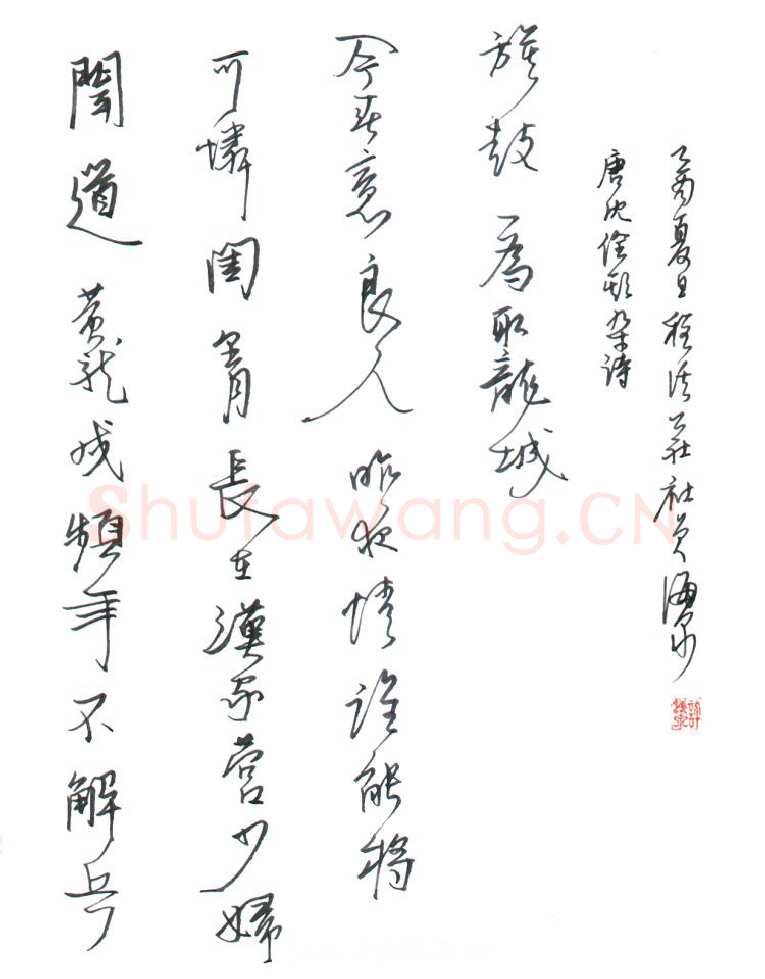 聞道黄龍戍頻年不解兵
可憐閨里月長在漢家營少婦
今春意良人昨夜情誰能將
旗鼓一為取龍城
唐沈佺期杂詩
夏日社員
Shufawang.CN